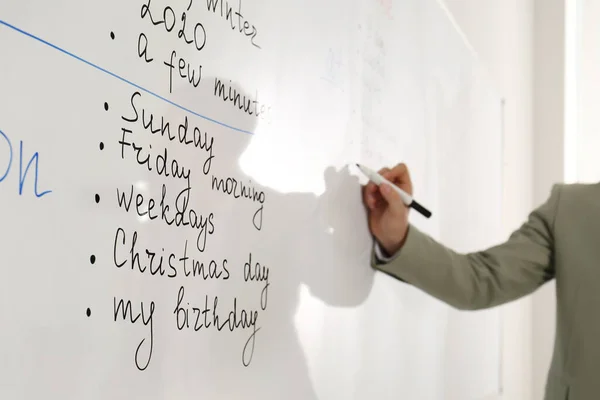 , winter
2020
• a few minutes
• Sunday
• Friday morning
• weekdays
• Christmas day
• my birthday
on